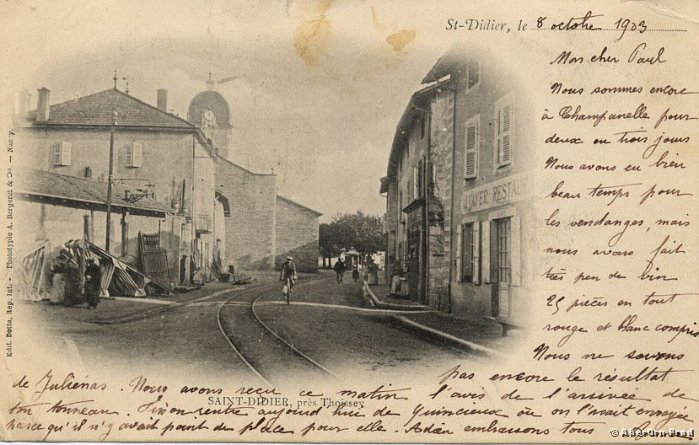 St-Didier, le 8 octobre 1903
Mon cher Paul
Nous sommes encore
à Champanelle pour
deux ou trois jours
Nous avons eu bien
beau temps pour
les vendanges, mais
nous avons fait
très peu de vin
25 pièces en tout
rouge et blanc compris
Nous ne savons
pas encore le résultat
de Juliénas. Nous avons reçu ce matin l'avis de l'arrivée de
ton tonneau. rentre aujourd'hui de Quincieux où on l'avait envoyée
parce qu'il n'y avait point de place pour elle. embrassons tous
SAINT-DIDIER, près Thoissey
CAFÉ QUAYER RESTAURANT
Edit. Phototypie A. Bergeret & Cie. — Nancy